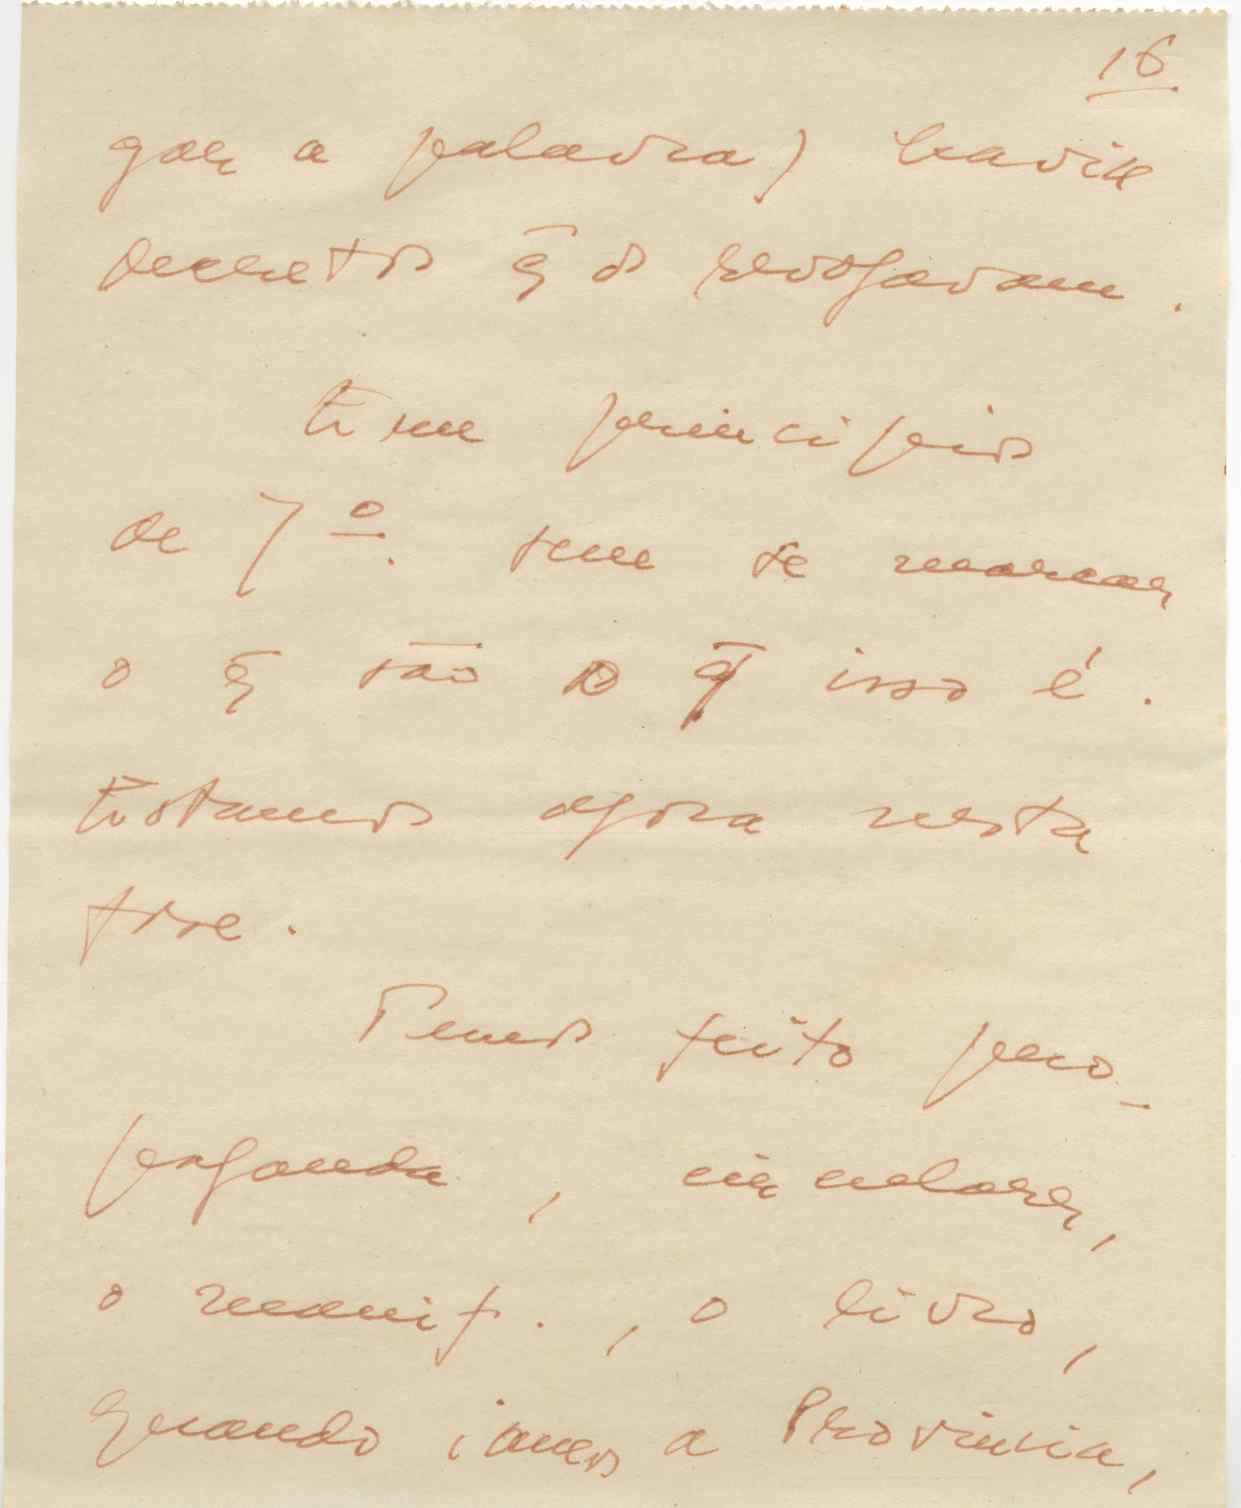 16
gar a palavra) havia
decretos q̄ os revogavam.
Em principios
de 7º. sem se marcar
o q̄ são q̄ isso é.
Estamos agora nesta
fase.
Temos feito pro-
paganda, circulares,
o manif., o livro,
quando iamos a Provincia,